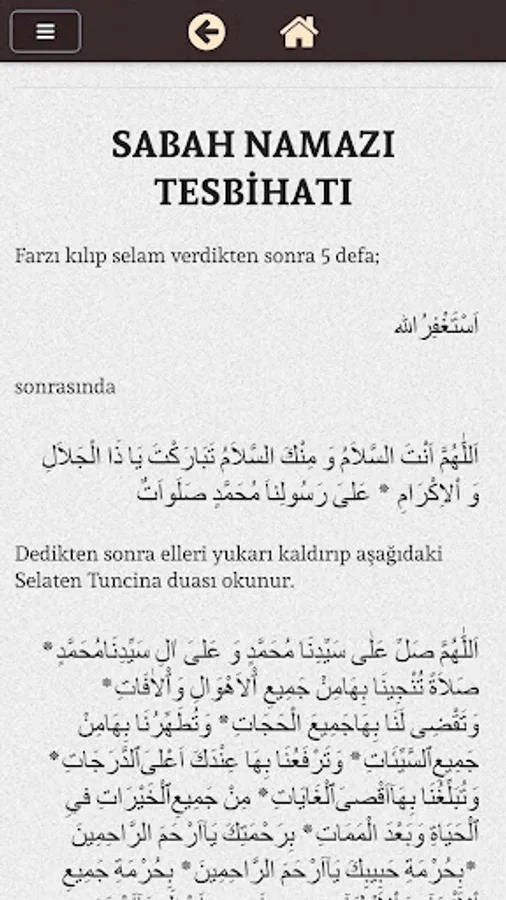 SABAH NAMAZI
TESBİHATI
Farzı kılıp selam verdikten sonra 5 defa;
اَسْتَغْفِرُ الله
sonrasında
اَللّٰهُمَّ اَنْتَ السَّلاَمُ وَ مِنْكَ السَّلاَمُ تَبَارَكْتَ يَا ذَا الْجَلاَلِ
وَ اْلاِكْرَامِ * عَلىَ رَسُولِناَ مُحَمَّدٍ صَلَواَتٌ
Dedikten sonra elleri yukarı kaldırıp aşağıdaki
Selaten Tuncina duası okunur.
اَللّٰهُمَّ صَلِّ عَلٰى سَيِّدِنَا مُحَمَّدٍ وَ عَلىَ اٰلِ سَيِّدِنَامُحَمَّدٍ *
صَلاَةً تُنْجِينَا بِهَامِنْ جَمِيعِ اْلاَهْوَالِ وَاْلاٰفَاتِ *
وَتَقْضِى لَنَا بِهَاجَمِيعَ الْحَجَاتِ * وَتُطَهِّرُنَا بِهَامِنْ
جَمِيعِ السَّيِّئَاتِ * وَتَرْفَعُنَا بِهَا عِنْدَكَ اَعْلىَ الدَّرَجَاتِ *
وَتُبَلِّغُنَا بِهَااَقْصىَ الْغَايَاتِ * مِنْ جَمِيعِ الْخَيْرَاتِ فىِ
الْحَيَاةِ وَبَعْدَ الْمَمَاتِ * بِرَحْمَتِكَ يَااَرْحَمَ الرَّاحِمِينَ
* بِحُرْمَةِ حَبِيبِكَ يَااَرْحَمَ الرَّاحِمِينَ * بِحُرْمَةِ جَمِيعِ